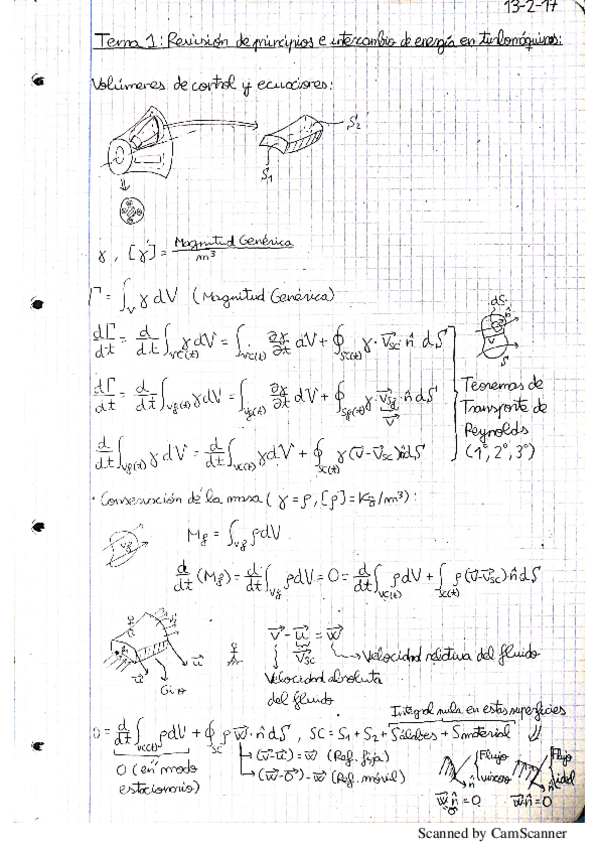 13-2-17
Tema 1: Revisión de principios e intercambio de energía en turbomáquinas:
Volúmenes de control y ecuaciones:
S₂
S₁
γ, [γ] = Magnitud Genérica / m³
Γ = ∫_V γ dV (Magnitud Genérica)
dΓ/dt = d/dt ∫_Vc(t) γ dV = ∫_Vc(t) ∂γ/∂t dV + ∮_Sc(t) γ · v⃗sc · n̂ dS
dΓ/dt = d/dt ∫_Vf(t) γ dV = ∫_Vf(t) ∂γ/∂t dV + ∮_Sf(t) γ · v⃗sf · n̂ dS
v⃗
d/dt ∫_Vf(t) γ dV = d/dt ∫_Vc(t) γ dV + ∮_Sc(t) γ (v⃗ - v⃗sc) n̂ dS
dS
n̂
V
S
Teoremas de
Transporte de
Reynolds
(1º, 2º, 3º)
· Conservación de la masa (γ = ρ, [ρ] = Kg/m³):
Vf
Mf = ∫_Vf ρ dV
d/dt (Mf) = d/dt ∫_Vf ρ dV = 0 = d/dt ∫_Vc(t) ρ dV + ∫_Sc(t) ρ (v⃗ - v⃗sc) n̂ dS
v⃗ - u⃗ = w⃗
v⃗sc
Velocidad relativa del fluido
Velocidad absoluta
del fluido
u⃗
u⃗
Giro
Integral nula en estas superficies
0 = d/dt ∫_Vc(t) ρ dV + ∮_SC ρ w⃗ · n̂ dS, SC = S₁ + S₂ + Sálabes + Smaterial
0 (en modo
estacionario)
(v⃗ - u⃗) = w⃗ (Ref. fija)
(w⃗ - 0⃗) = w⃗ (Ref. móvil)
Flujo
viscoso
n̂
w⃗ · n̂ = 0
Flujo
ideal
n̂
w⃗ · n̂ = 0
Scanned by CamScanner